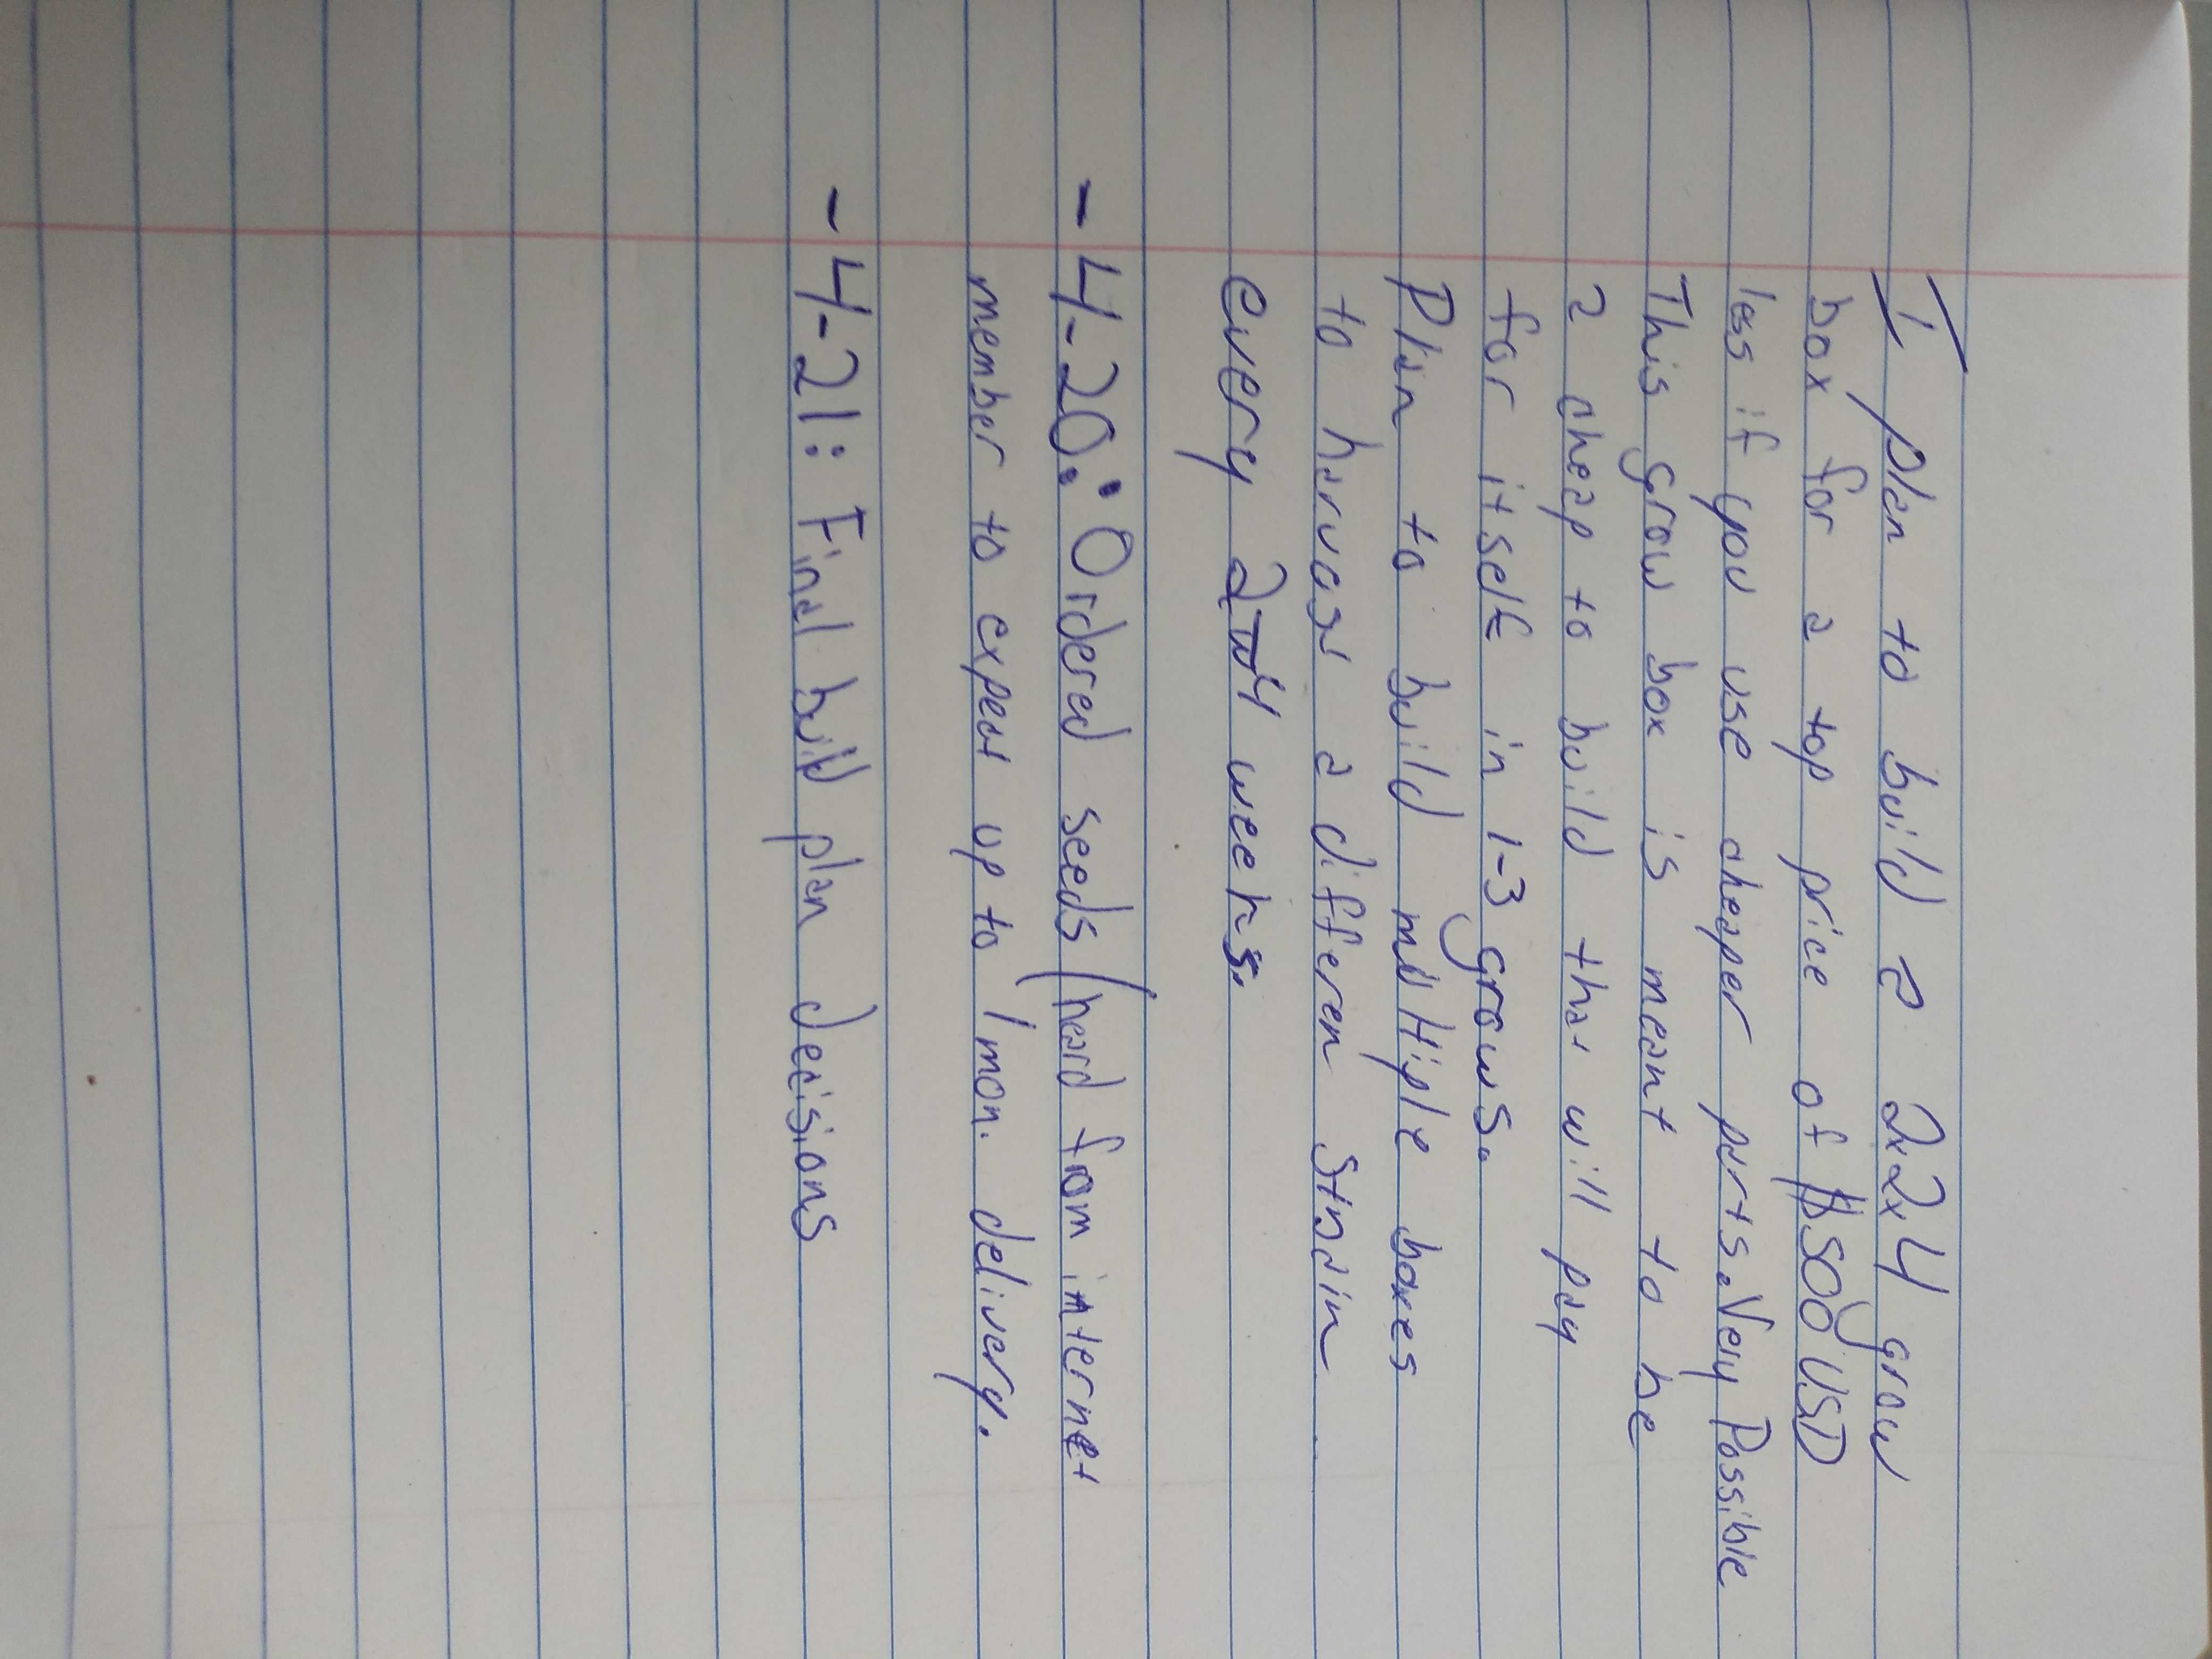 I plan to build a 2x2x4 grow
box for a top price of $500 USD
less if you use cheaper parts. Very Possible
This grow box is meant to be
a cheap to build that will pay
for itself in 1-3 grows.
Plan to build multiple boxes
to harvast a differen strain
every 4 weeks.
- 4-20: Ordered seeds (heard from internet
member to expect up to 1 mon. delivery.
- 4-21: Final build plan decisions